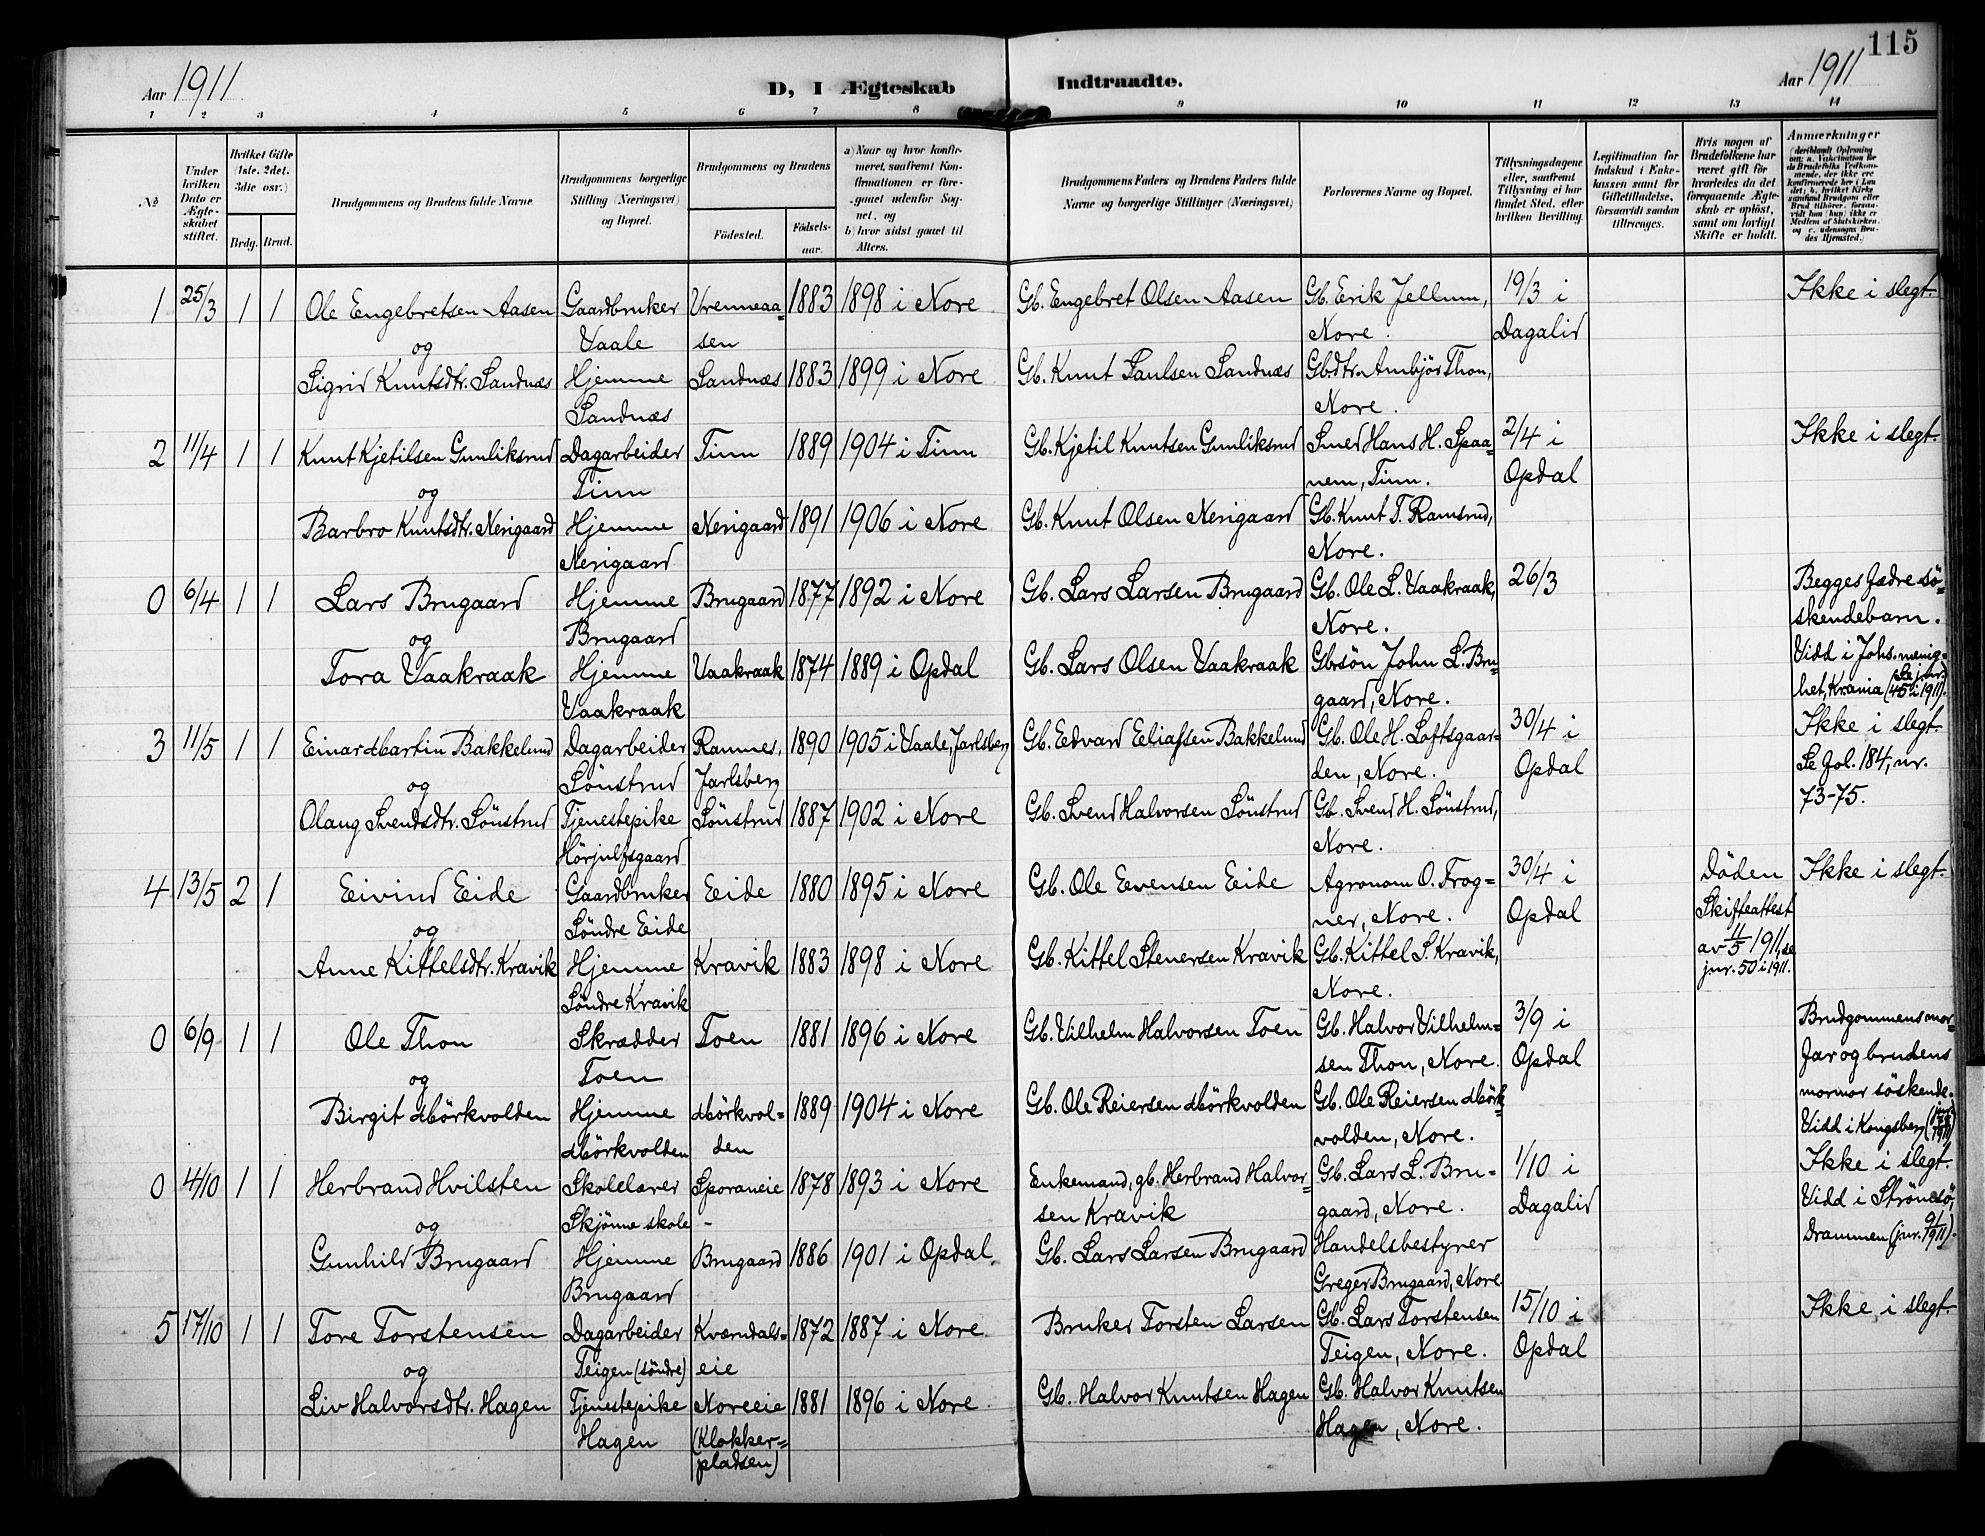 115
Aar 1911
D, I Ægteskab Indtraadte.
Aar 1911
1 2 3 4 5 6 7 8 9 10 11 12 13 14
№
Under hvilken Dato er Ægteskabet stiftet.
Hvilket Gifte (1ste, 2det, 3die osv.)
Brdg. Brud.
Brudgommens og Brudens fulde Navne
Brudgommens borgerlige Stilling (Næringsvei) og Bopæl.
Brudgommens og Brudens
Fødested.
Fødsels-aar.
a) Naar og hvor konfirmeret, saafremt Konfirmationen er foregaaet udenfor Sognet, og
b) hvor sidst gaaet til Alters.
Brudgommens Faders og Brudens Faders fulde Navne og borgerlige Stillinger (Næringsvei)
Forlovernes Navne og Bopæl.
Tillysningsdagene eller, saafremt Tillysning ei har fundet Sted, efter hvilken Bevilling.
Legitimation for Indskud i Enkekassen samt for Giftetilladelse, forsaavidt saadan tiltrænges.
Hvis nogen af Brudefolkene har været gift før hvorledes da det foregaaende Ægteskab er opløst, samt om lovligt Skifte er holdt.
Anmærkninger
(deriblandt Oplysning om: a. Vakcination for de Brudefolks Vedkommende, der ikke ere konfirmerede her i Landet; b. hvilket Kirkesamfund Brudgom eller Brud tilhører, forsaavidt han (hun) ikke er Medlem af Statskirken, og c. udensogns Brudes Hjemsted.)
1 25/3 1 1 Ole Engebretsen Aasen Gaardbruker Vrenneaa= 1883 1898 i Nore Gb. Engebret Olsen Aasen Gb. Erik Jellum, 19/3 i Ikke i slegt.
og Vaale sen Nore. Dagalid
Sigrid Knutsdtr. Sandnæs Hjemme Sandnæs 1883 1899 i Nore Gb. Knut Paulsen Sandnæs Gbdtr. Ambjör Thon,
Sandnæs Nore.
2 11/4 1 1 Knut Kjetilsen Gunliksrud Dagarbeider Tinn 1889 1904 i Tinn Gb. Kjetil Knutsen Gunliksrud Smed Hans H. Spaa= 2/4 i Ikke i slegt.
og Tinn nem, Tinn. Opdal
Barbro Knutsdtr. Nerigaard Hjemme Nerigaard 1891 1906 i Nore Gb. Knut Olsen Nerigaard Gb. Knut T. Ramsrud,
Nerigaard Nore.
0 6/4 1 1 Lars Brugaard Hjemme Brugaard 1877 1892 i Nore Gb. Lars Larsen Brugaard Gb. Ole L. Vaakraak, 26/3 Begges fædre sö=
og Brugaard Nore. skendebarn.
Tora Vaakraak Hjemme Vaakraak 1874 1889 i Opdal Gb. Lars Olsen Vaakraak Gbrsön John L. Bru= Vidd i Johs. menig=
Vaakraak gaard, Nore. het, Krania (Se jnr. 45 i 1911).
3 11/5 1 1 Einar Martin Bakkelund Dagarbeider Ramnes, 1890 1905 i Vaale, Jarlsberg Gb. Edvard Eliassen Bakkelund Gb. Ole H. Loftsgaar= 30/4 i Ikke i slegt.
og Sönstrud Jarlsberg den, Nore. Opdal Se fol. 184, nr.
Olaug Svendsdtr. Sönstrud Tjenestepike Sönstrud 1887 1902 i Nore Gb. Svend Halvorsen Sönstrud Gb. Svend H. Sönstrud, 73-75.
Hörjulfsgaard Nore.
4 13/5 2 1 Eivind Eide Gaardbruker Eide 1880 1895 i Nore Gb. Ole Evensen Eide Agronom O. Frog= 30/4 i Döden Ikke i slegt.
og Söndre Eide ner, Nore. Opdal Skifteattest
Anne Kittelsdtr. Kravik Hjemme Kravik 1883 1898 i Nore Gb. Kittel Stenersen Kravik Gb. Kittel S. Kravik, av 4/5 1911, se
Söndre Kravik Nore. jnr. 50 i 1911.
0 6/9 1 1 Ole Thon Skrædder Toen 1881 1896 i Nore Gb. Vilhelm Halvorsen Toen Gb. Halvor Vilhelm= 3/9 i Brudgommens mor=
og Toen sen Thon, Nore. Opdal far og brudens
Birgit Mörkvolden Hjemme Mörkvol= 1889 1904 i Nore Gb. Ole Reiersen Mörkvolden Gb. Ole Reiersen Mörk= mormor söskende.
Mörkvolden den volden, Nore. Vidd i Kongsberg
0 4/10 1 1 Herbrand Hvilsten Skolelærer Sporaneie 1878 1893 i Nore Enkemand, gb. Herbrand Halvor= Gb. Lars L. Bru= 1/10 i Ikke i slegt.
og Skjönne skole - sen Kravik gaard, Nore. Dagalid Vidd i Strömsö,
Gunhild Brugaard Hjemme Brugaard 1886 1901 i Opdal Gb. Lars Larsen Brugaard Handelsbestyrer Drammen (jnr. 91/1911).
Brugaard Greger Brugaard, Nore.
5 17/10 1 1 Tore Torstensen Dagarbeider Kværndals= 1872 1887 i Nore Bruker Torsten Larsen Gb. Lars Torstensen 15/10 i Ikke i slegt.
og Teigen (söndre) eie Teigen, Nore. Opdal
Liv Halvorsdtr. Hagen Tjenestepike Noreeie 1881 1896 i Nore Gb. Halvor Knutsen Hagen Gb. Halvor Knutsen
Hagen (Klokker= Hagen, Nore.
pladsen)